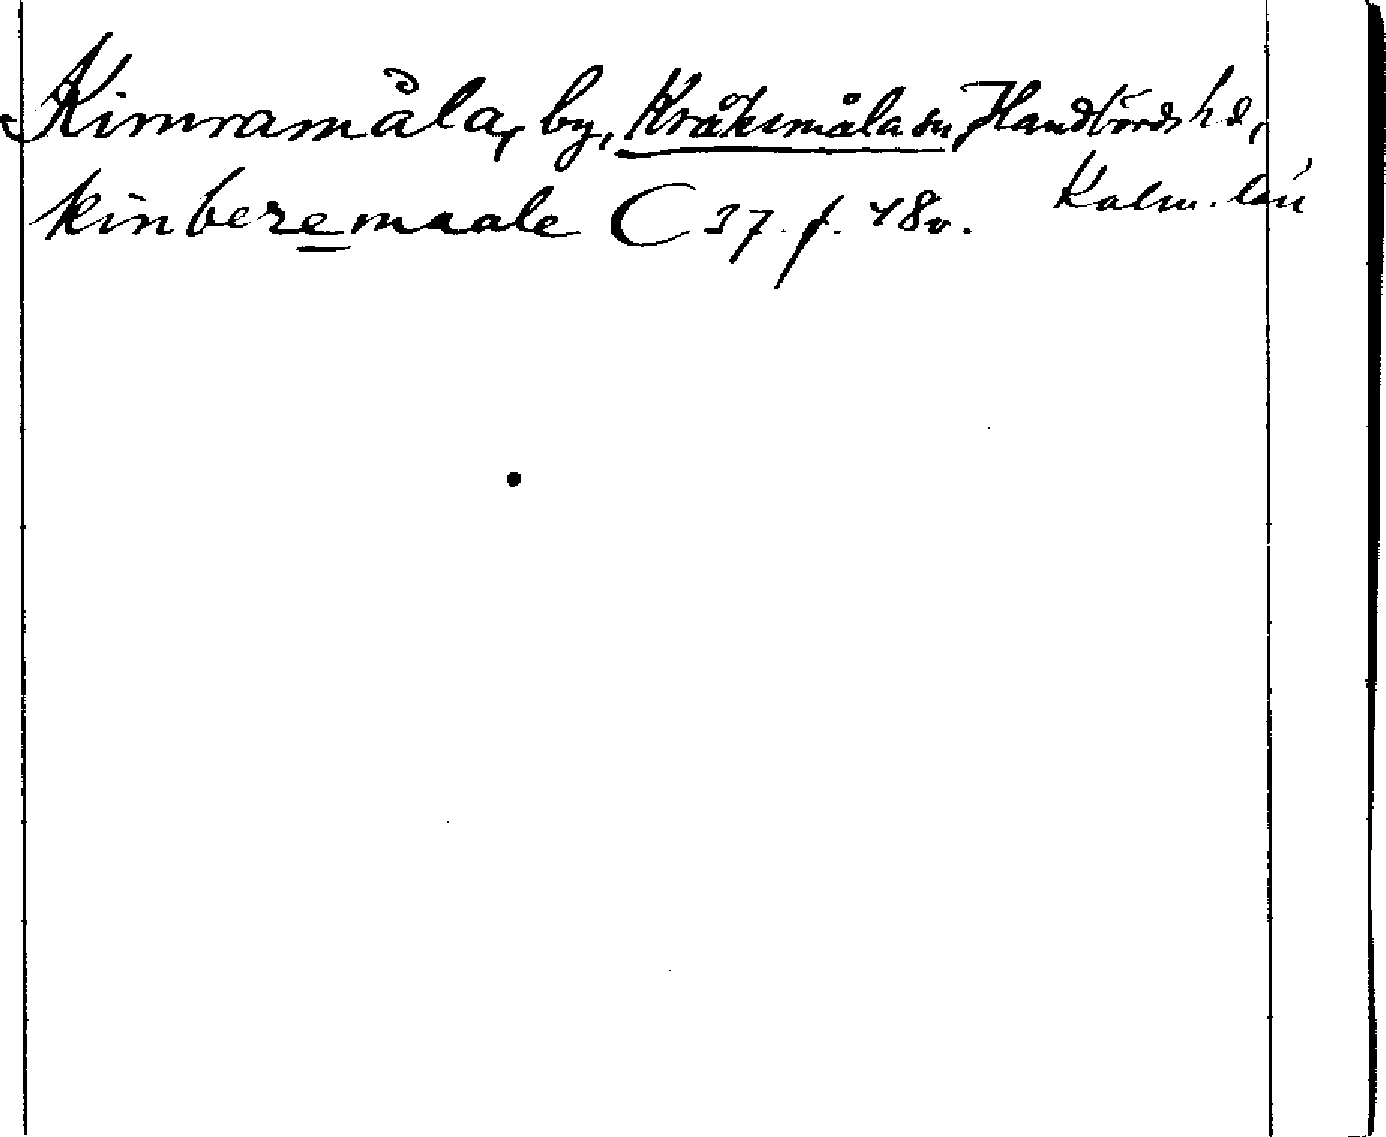 Kimramåla, by, Kråksmåla sn, Handbörds hd,
Kalm. län
kinberemaale C 37 f. 48v.